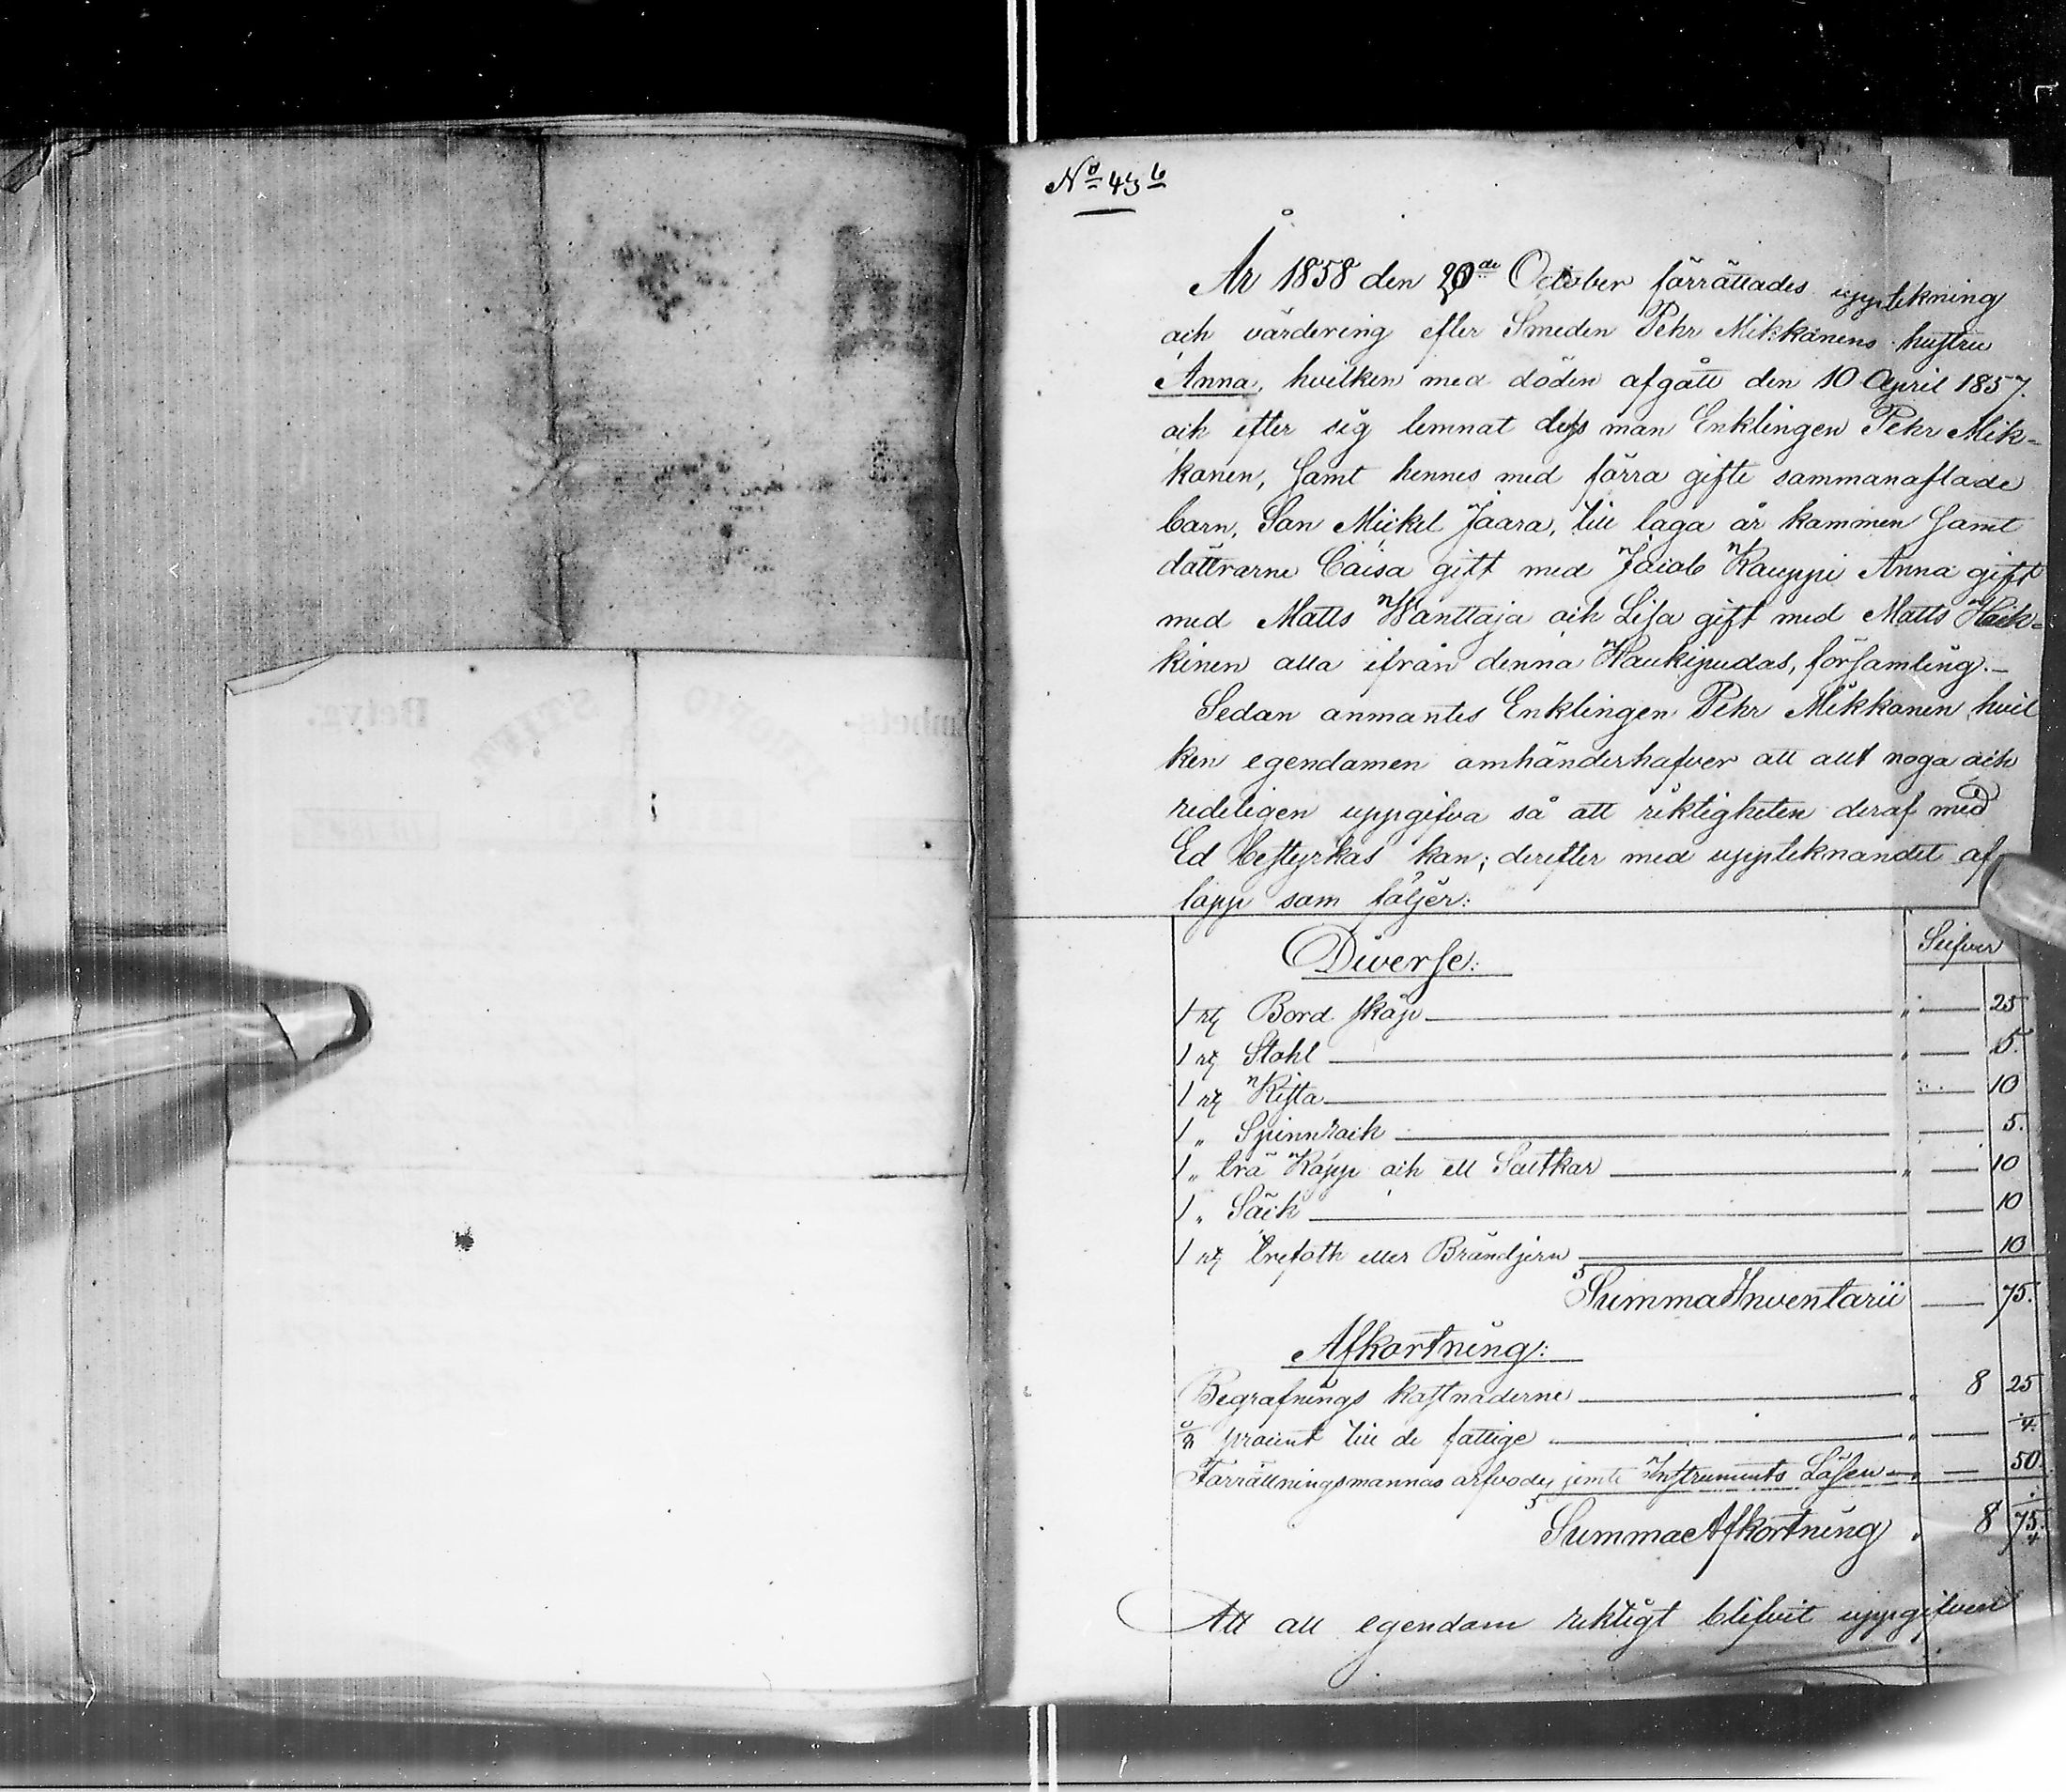 No 43 b
År 1858 den 20de October förrättades upptekning
och värdering efter Smeden Pehr Mikkonens hustru
Anna, hvilken med döden afgått den 10 April 1857.
och efter sig lemnat dess man Enklingen Pehr Mik-
konen, samt hennes med förra gifte sammanaflade
barn, Son Mickel Jaara, till laga år kommen samt
döttrarne Caisa gift med Jacob Kauppi Anna gift
med Matts Wänttaja och Lisa gift med Matts Häik-
kinen alla ifrån denna Haukipudas, församling.
Sedan anmantes Enklingen Pehr Mikkonen hvil
ken egendomen omhänderhafver att allt noga och
redeligen uppgifva så att riktigheten deraf med
Ed bestyrkas kan; derefter med uppteknandet af
lopp som följer:
Diverse: Silfver
1 st Bord skåp " — 25
1 st Stohl " — 5.
1 st Kista — 10
1 " Spinnrock — 5.
1 " trä Kopp och ett Saltkar " — 10
1 " Säck — 10
1 st trefoth eller Brandjern — 10
Summa Inventarii — 75.
Afkortning:
Begrafnings kostnaderne " 8 25
procent till de fattige " —
Förrättningsmannas arfvode, jemte Instruments Lösen " — 50
Summa Afkortning " 8 75
Att all egendom riktigt blifvit uppgifven
Betyg.